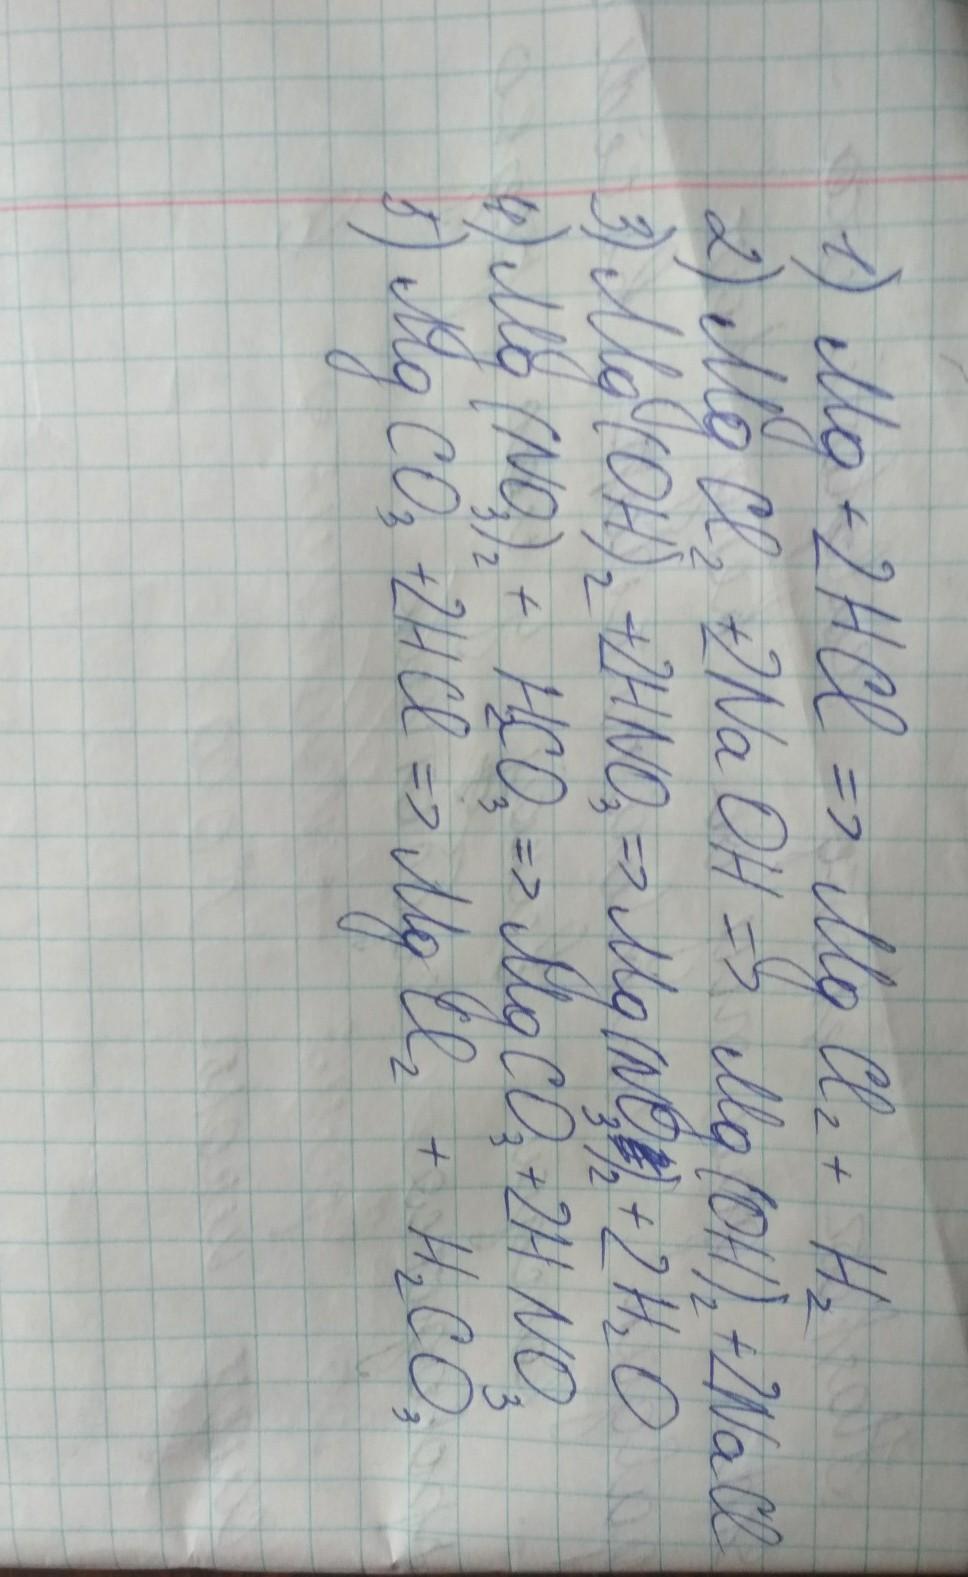 1) Mg + 2HCl => MgCl₂ + H₂
2) MgCl₂ + 2NaOH => Mg(OH)₂ + 2NaCl
3) Mg(OH)₂ + 2HNO₃ => Mg(NO₃)₂ + 2H₂O
4) Mg(NO₃)₂ + H₂CO₃ => MgCO₃ + 2HNO₃
5) MgCO₃ + 2HCl => MgCl₂ + H₂CO₃